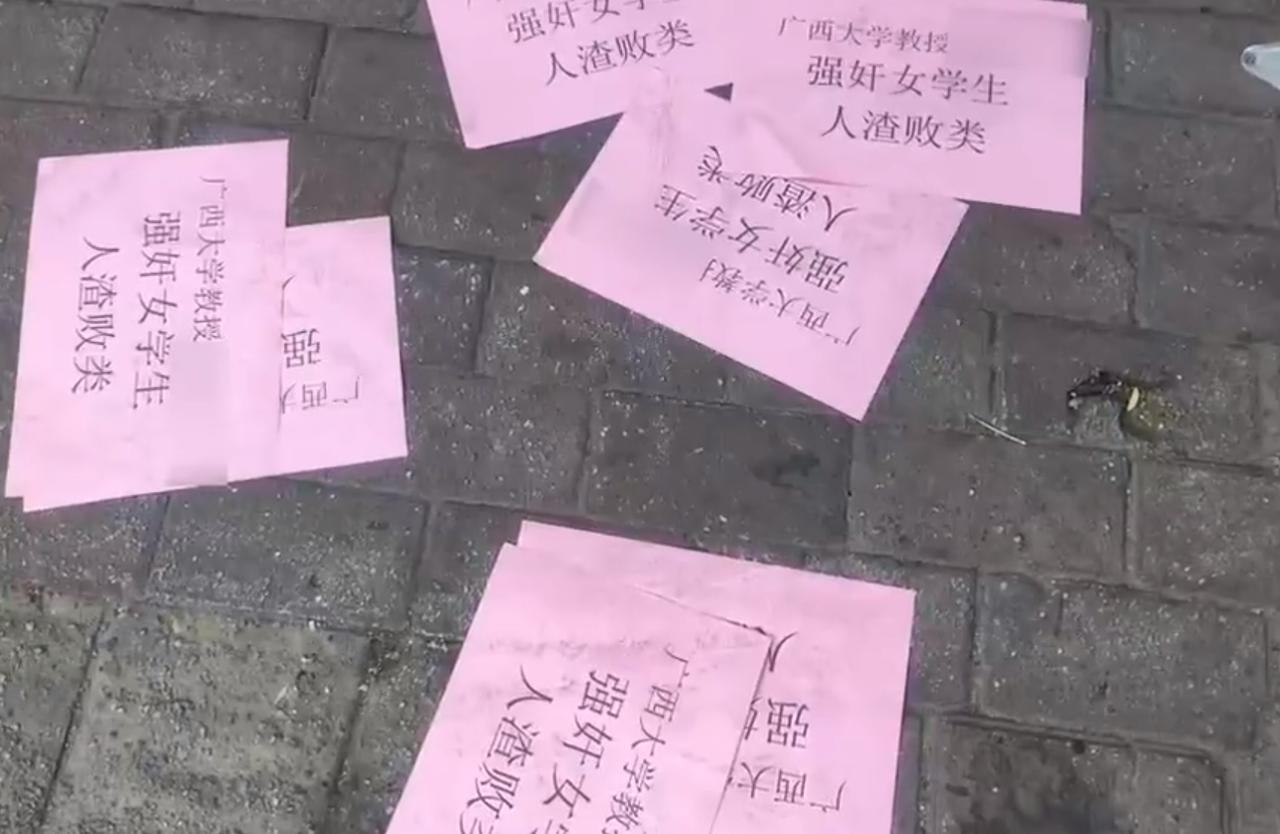 强奸女学生
人渣败类
广西大学教授
强奸女学生
人渣败类
广西大学教
强奸女学生
人渣败类
广西大学教授
强奸女学生
人渣败类
广西大
强
人
广西大学教
强奸女学
人渣败类
广西大
强奸
人